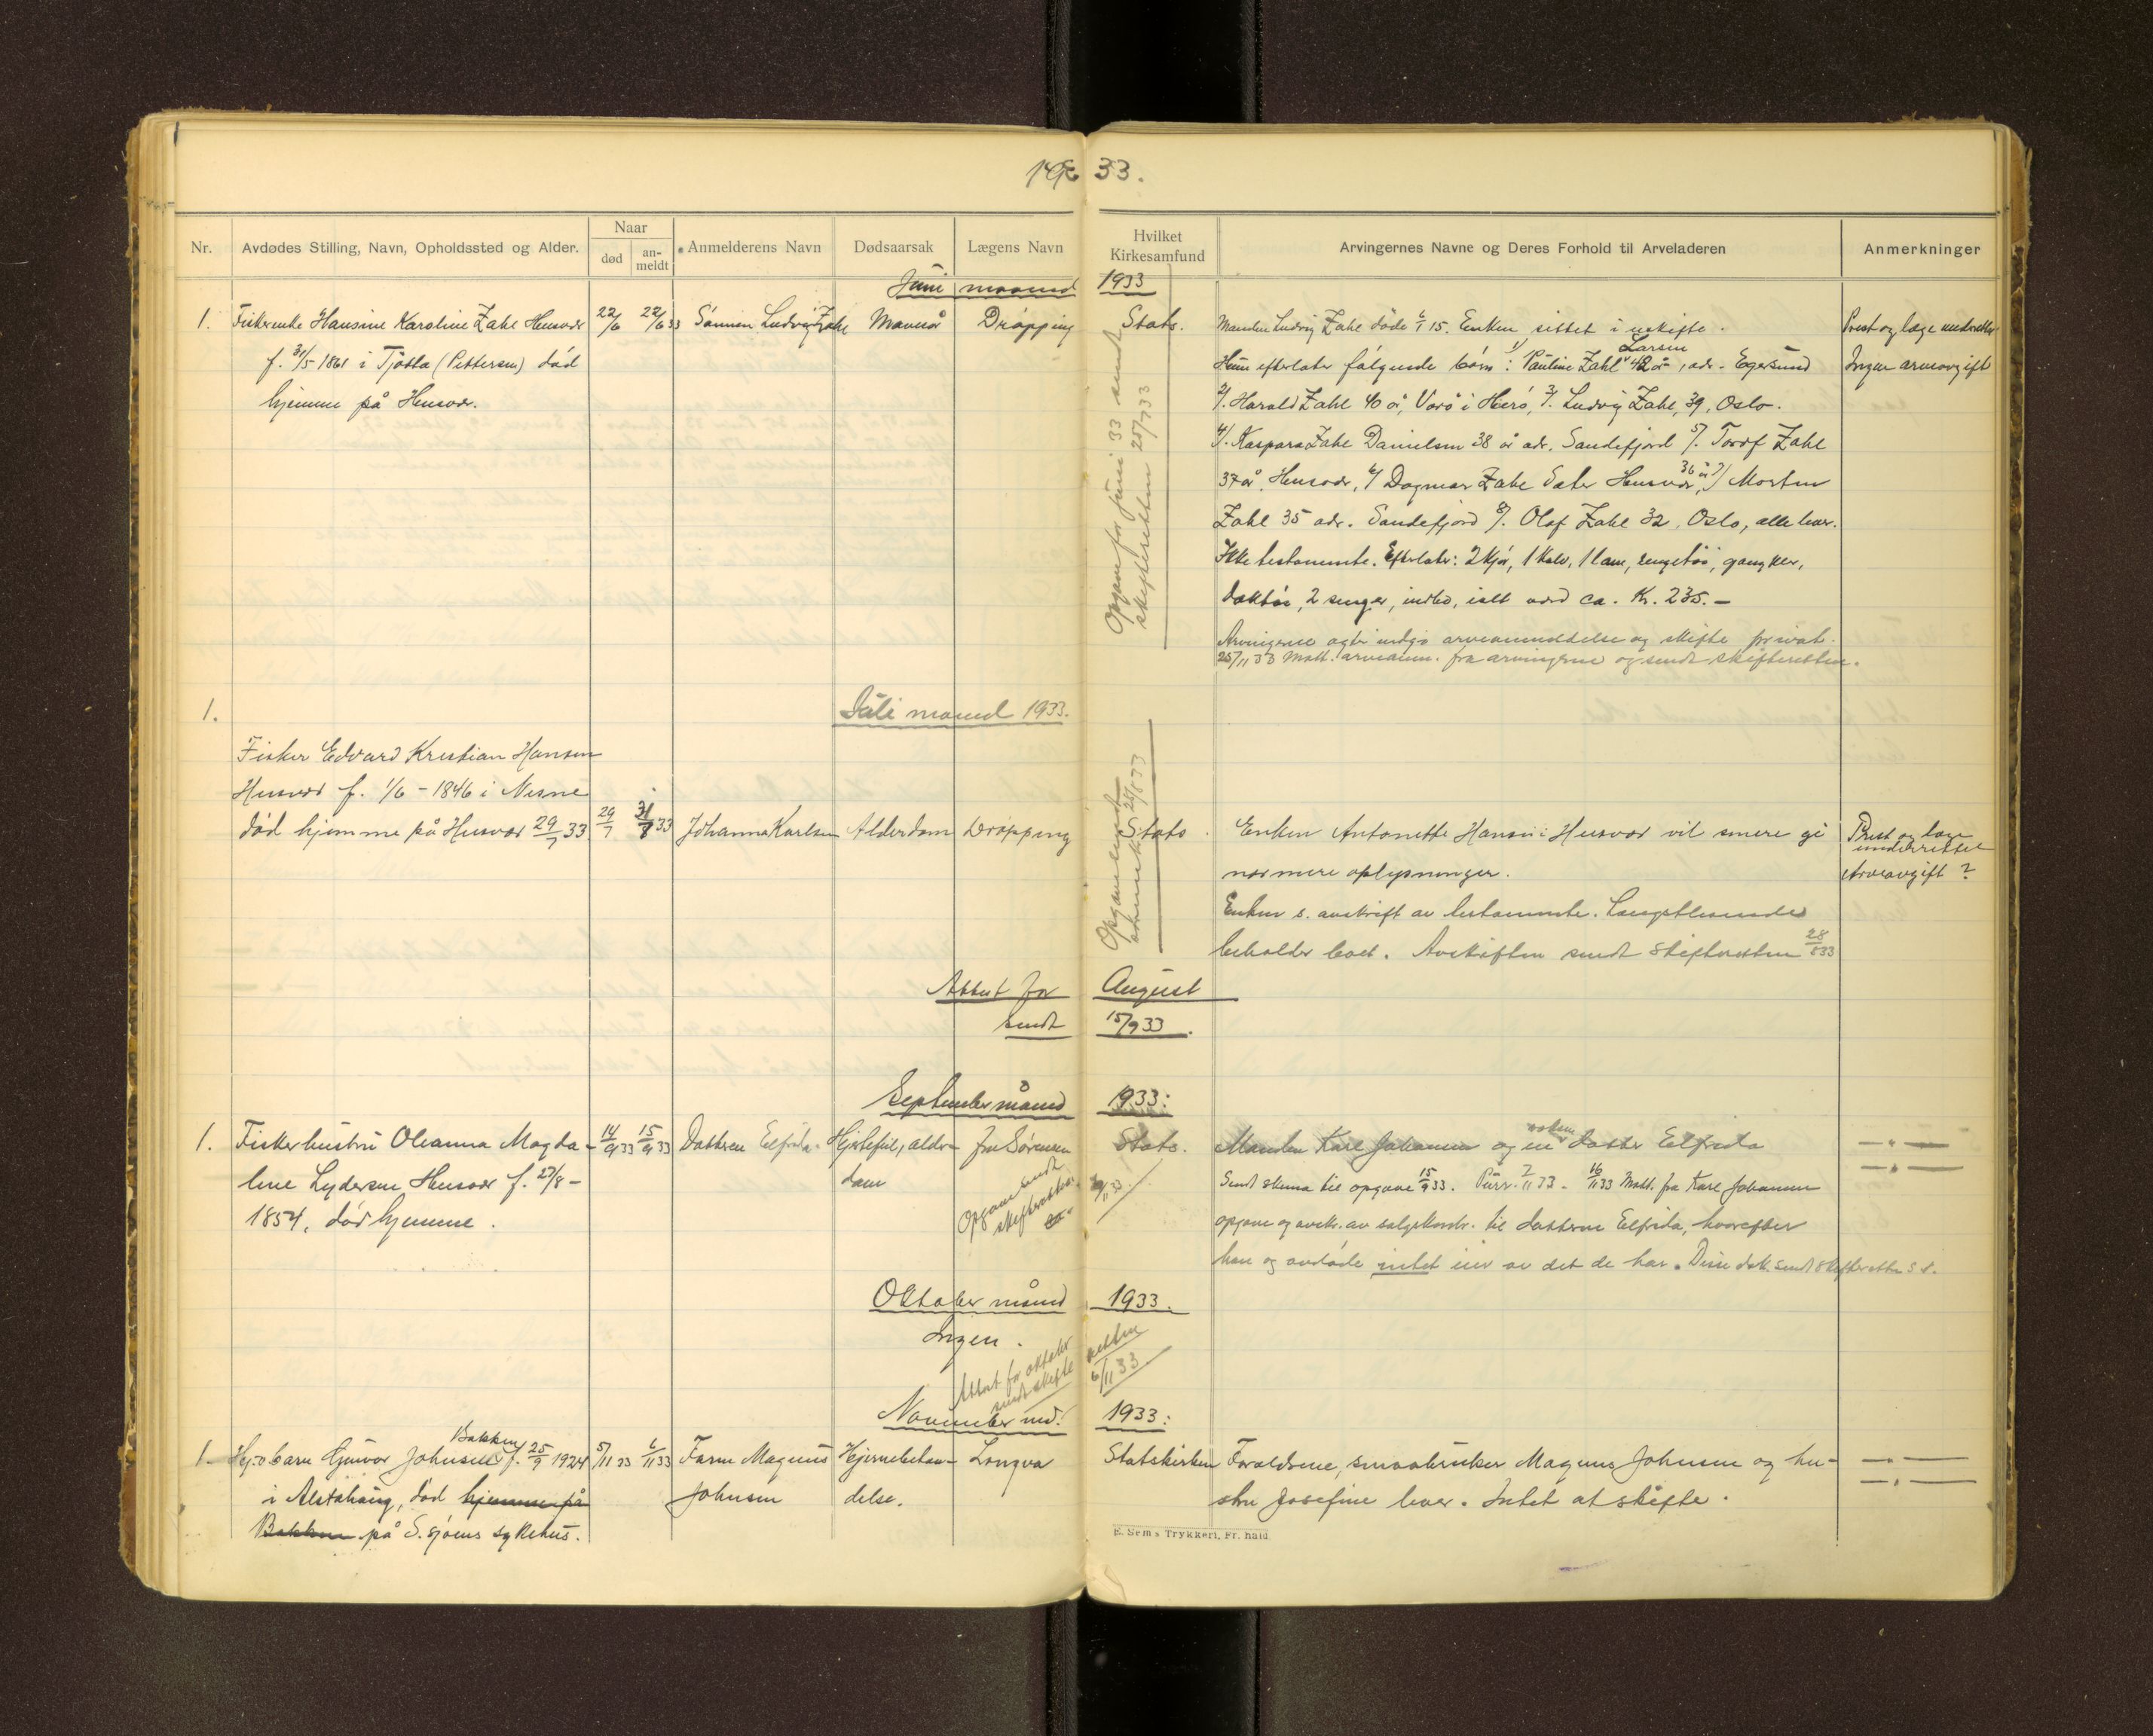 19 33.
Nr. Avdødes Stilling, Navn, Opholdssted og Alder. Naar død an-meldt Anmelderens Navn Dødsaarsak Lægens Navn Hvilket Kirkesamfund Arvingernes Navne og Deres Forhold til Arveladeren Anmerkninger
Juni maaned 1933
1. Fiskerenke Hansine Karoline Zahl Husvær 22/6 22/6 33 Sønnen Ludvig Zahl Mavesår Drøpping Stats. Manden Ludvig Zahl døde 6/1 15. Enken sittet i uskifte. Prest og læge underrettet
f. 31/5 1861 i Tjøtta (Pettersen) død
hjemme på Husvær.
Hun efterlater følgende børn: 1/ Pauline Zahl Larsen 42 år, adr. Egersund Ingen arveavgift
2/. Harald Zahl 40 år, Vorø i Herø, 3/. Ludvig Zahl, 39, Oslo.
4/. Kaspara Zahl Danielsen 38 år adr. Sandefjord 5/. Torolf Zahl
37 år, Husvær, 6/ Dagmar Zahl Sæter Husvær, 36 år 7/ Morten
Zahl 35 adr. Sandefjord 8/. Olaf Zahl 32, Oslo, alle lever.
Ikke testamente. Efterlater: 2 kjør, 1 kalv, 1 lam, sengetøi, gangklær,
2 senger, indbo, ialt verd ca. Kr. 235.-
Arvingerne agter indgi arveanmeldelse og skifte privat.
25/11 33 Matt. arveanm. fra arvingerne og sendt skifteretten.
Opgave for juni 33 sendt
skifteretten 25/7 33
1. Juli maaned 1933.
Fisker Edvard Kristian Hansen
Husvær f. 1/6 - 1846 i Nesne
død hjemme på Husvær 29/7 33 29/7 31/7 33 Johanna Karlsen Alderdom Drøpping Stats. Enken Antonette Hansen i Husvær vil senere gi Prest og læge underrettet
nærmere oplysninger. Arveavgift ?
Enken s. avskrift av testamente. Længstlevende
beholder boet. Avskriften sendt skifteretten 28/8 33
Opgave sendt
25/8 33
Attest for August
sendt 15/9 33.
September måned 1933:
1. Fiskerhustru Oleanna Magda- 14/9 33 15/9 33 Datteren Elfrida Hjertefeil, alder- Fru Sørensen Stats. Manden Karl Johansen og en voksen datter Elfrida
line Lydersen Husvær f. 27/8 - dom Sendt skema til opgave 15/9 33. Purr. 7/11 33 - 16/11 33 Matt. fra Karl Johansen
1854, død hjemme. opgave og avskr. av salgskontr. til datteren Elfrida, hvorefter
han og avdøde intet eier av det de har. Disse dok. sendt skifteretten s.d.
Opgave sendt
skifteretten
Oktober måned 1933.
Ingen.
Attest for oktober
sendt skifteretten
6/11 33
November md. 1933:
1. barn Gunvor Johnsen Bakken f. 25/9 1924 5/11 33 6/11 33 Faren Magnus Hjernebetæn- Longva Statskirken Foreldrene, smaabruker Magnus Johnsen og hu-
i Alstahaug, død hjemme på Johnsen delse. stru Josefine lever. Intet at skifte.
Bakken på S.sjøens sykehus.
E. Sems Trykkeri, Fr.hald